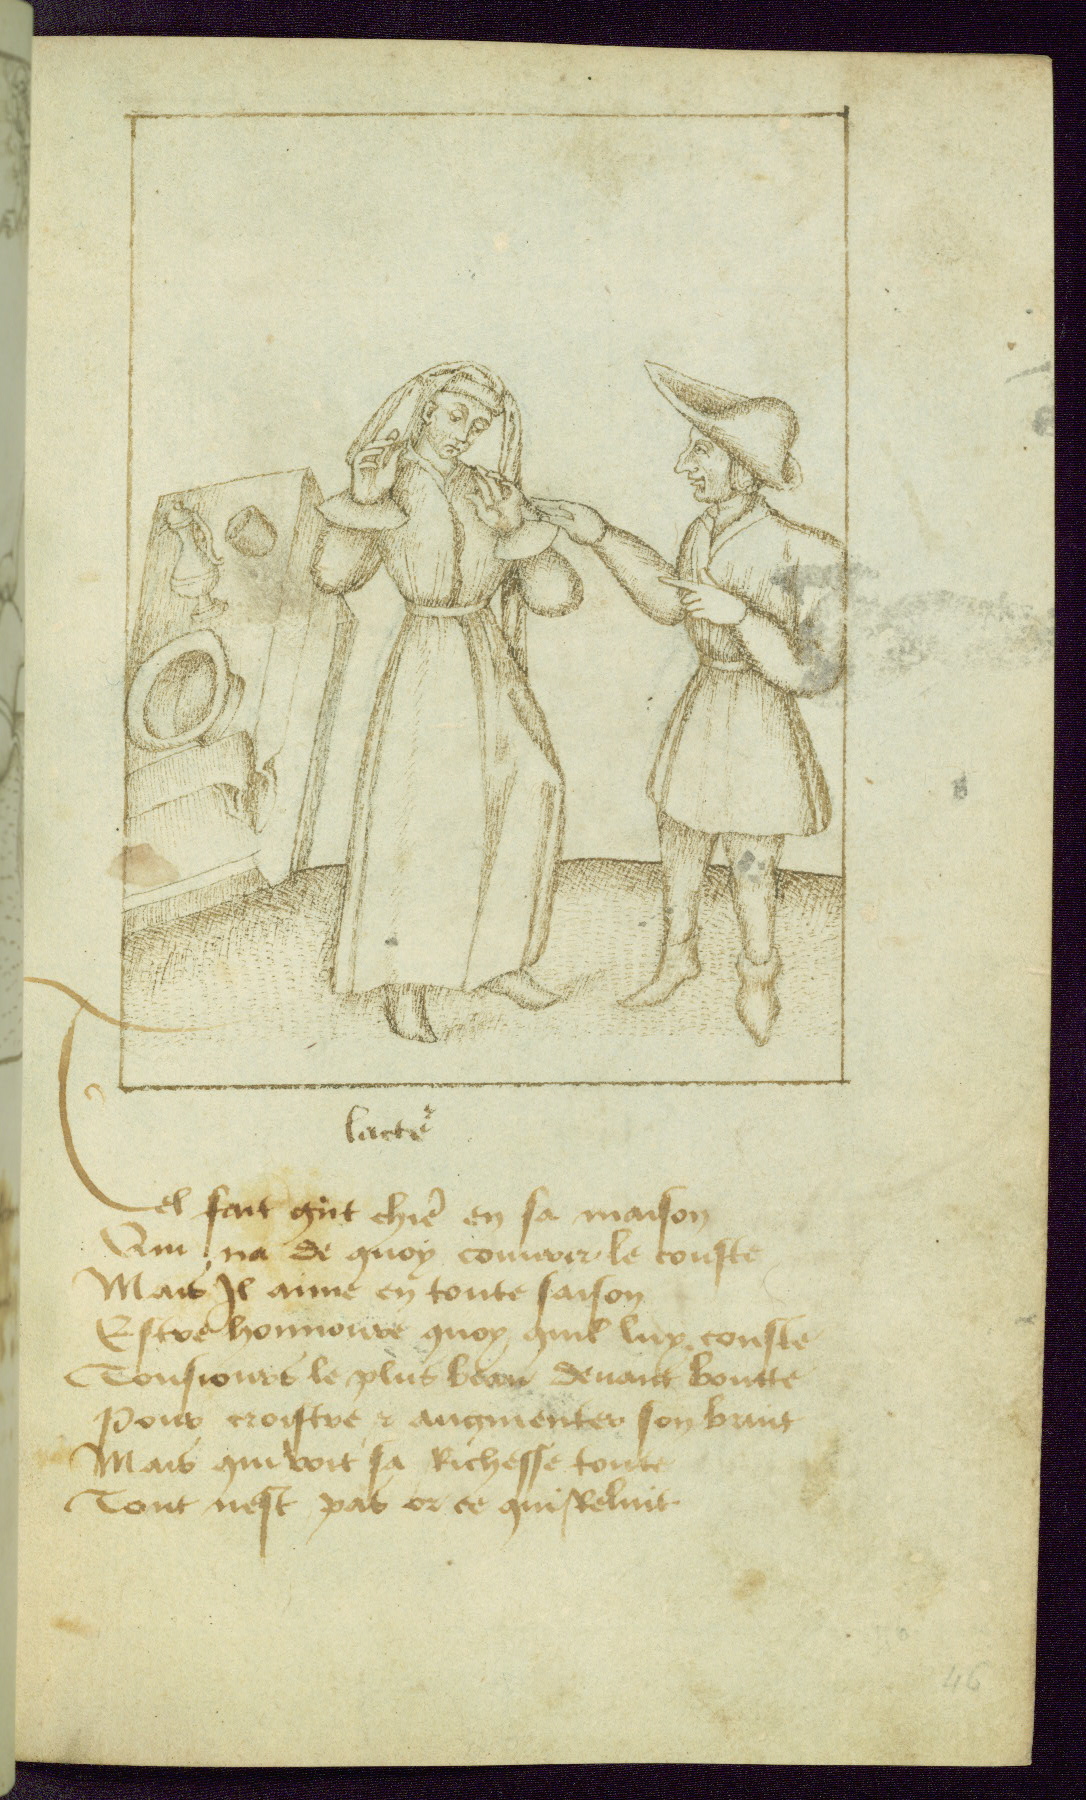 lacteʳ
Tel fait grāt chiē en sa maison
Qui na de quoy couurir le couste
Mais Il aime en toute saison
Estre honnoure quoy quil luy couste
Tousiours le plus beau deuant boutte
Pour croistre & augmenter son bruit
Mais qui voit sa Richesse toute
Tout nest pas or ce qui Reluit
46